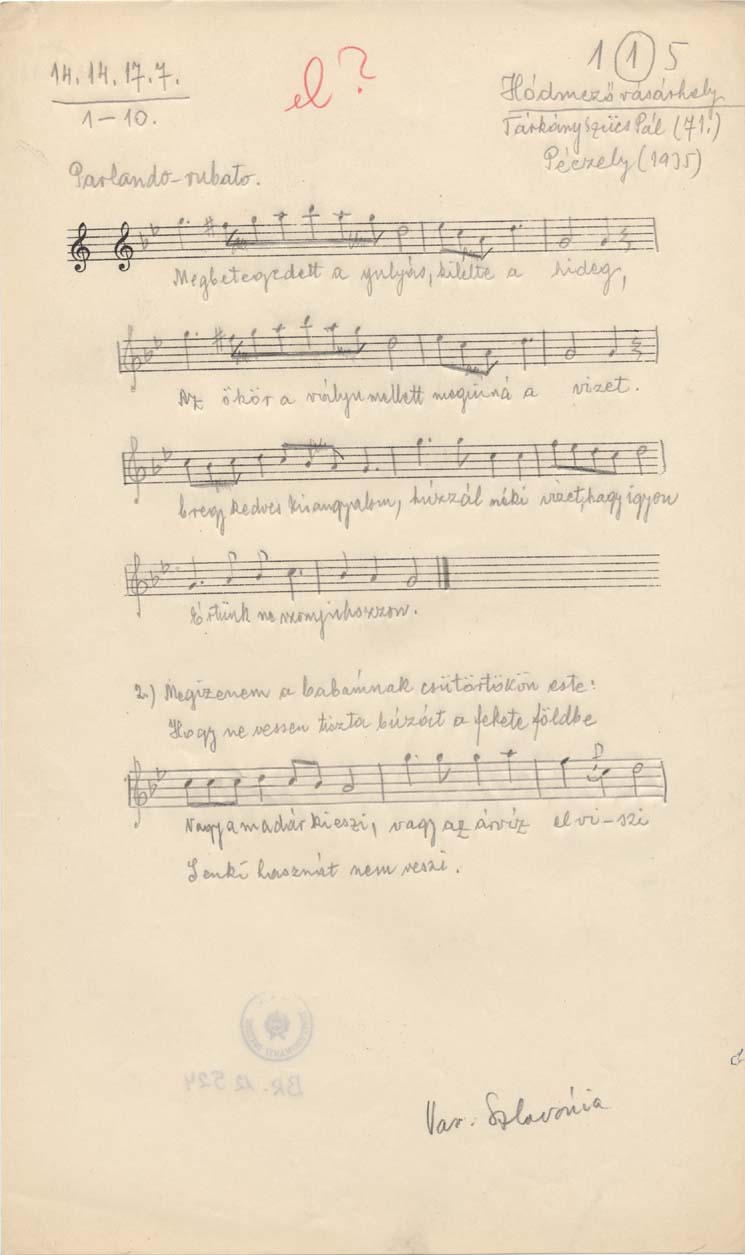 14.14.17.7.
1–10.
el?
1 1 5
Hódmezővásárhely
Tárkány Szücs Pál (71.)
Péczely (1935)
Parlando-rubato.
Megbetegedett a gulyás, kilelte a hideg,
Az ökör a vályu mellett megúnná a vizet.
Eregy kedves kisangyalom, húzzál néki vizet, hagy igyon
Értünk ne szomjuhozzon.
2.) Megizenem a babámnak csütörtökön este:
Hogy ne vessen tiszta búzát a fekete földbe
Vagy a madár kieszi, vagy az árvíz elvi–szi
Senki hasznát nem veszi.
BR. 12524
Var. Szlavónia